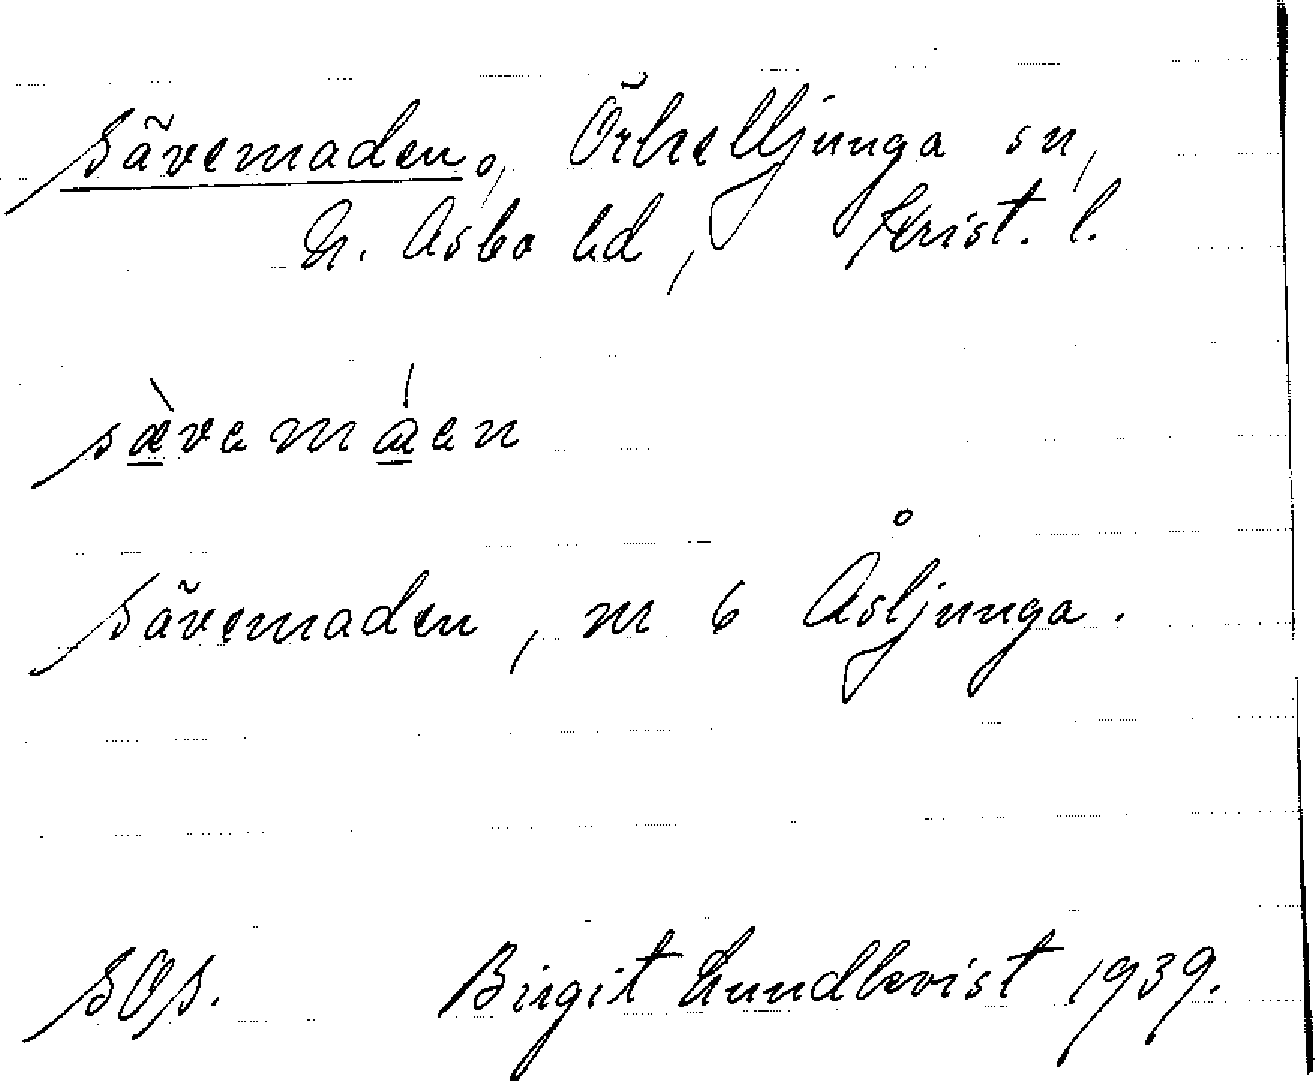 Sävemaden, Örkelljunga sn,
N. Åsbo hd, Krist. l.
sæ̀vemáen
Sävemaden, m 6 Åsljunga.
SOS. Birgit Lundkvist 1939.